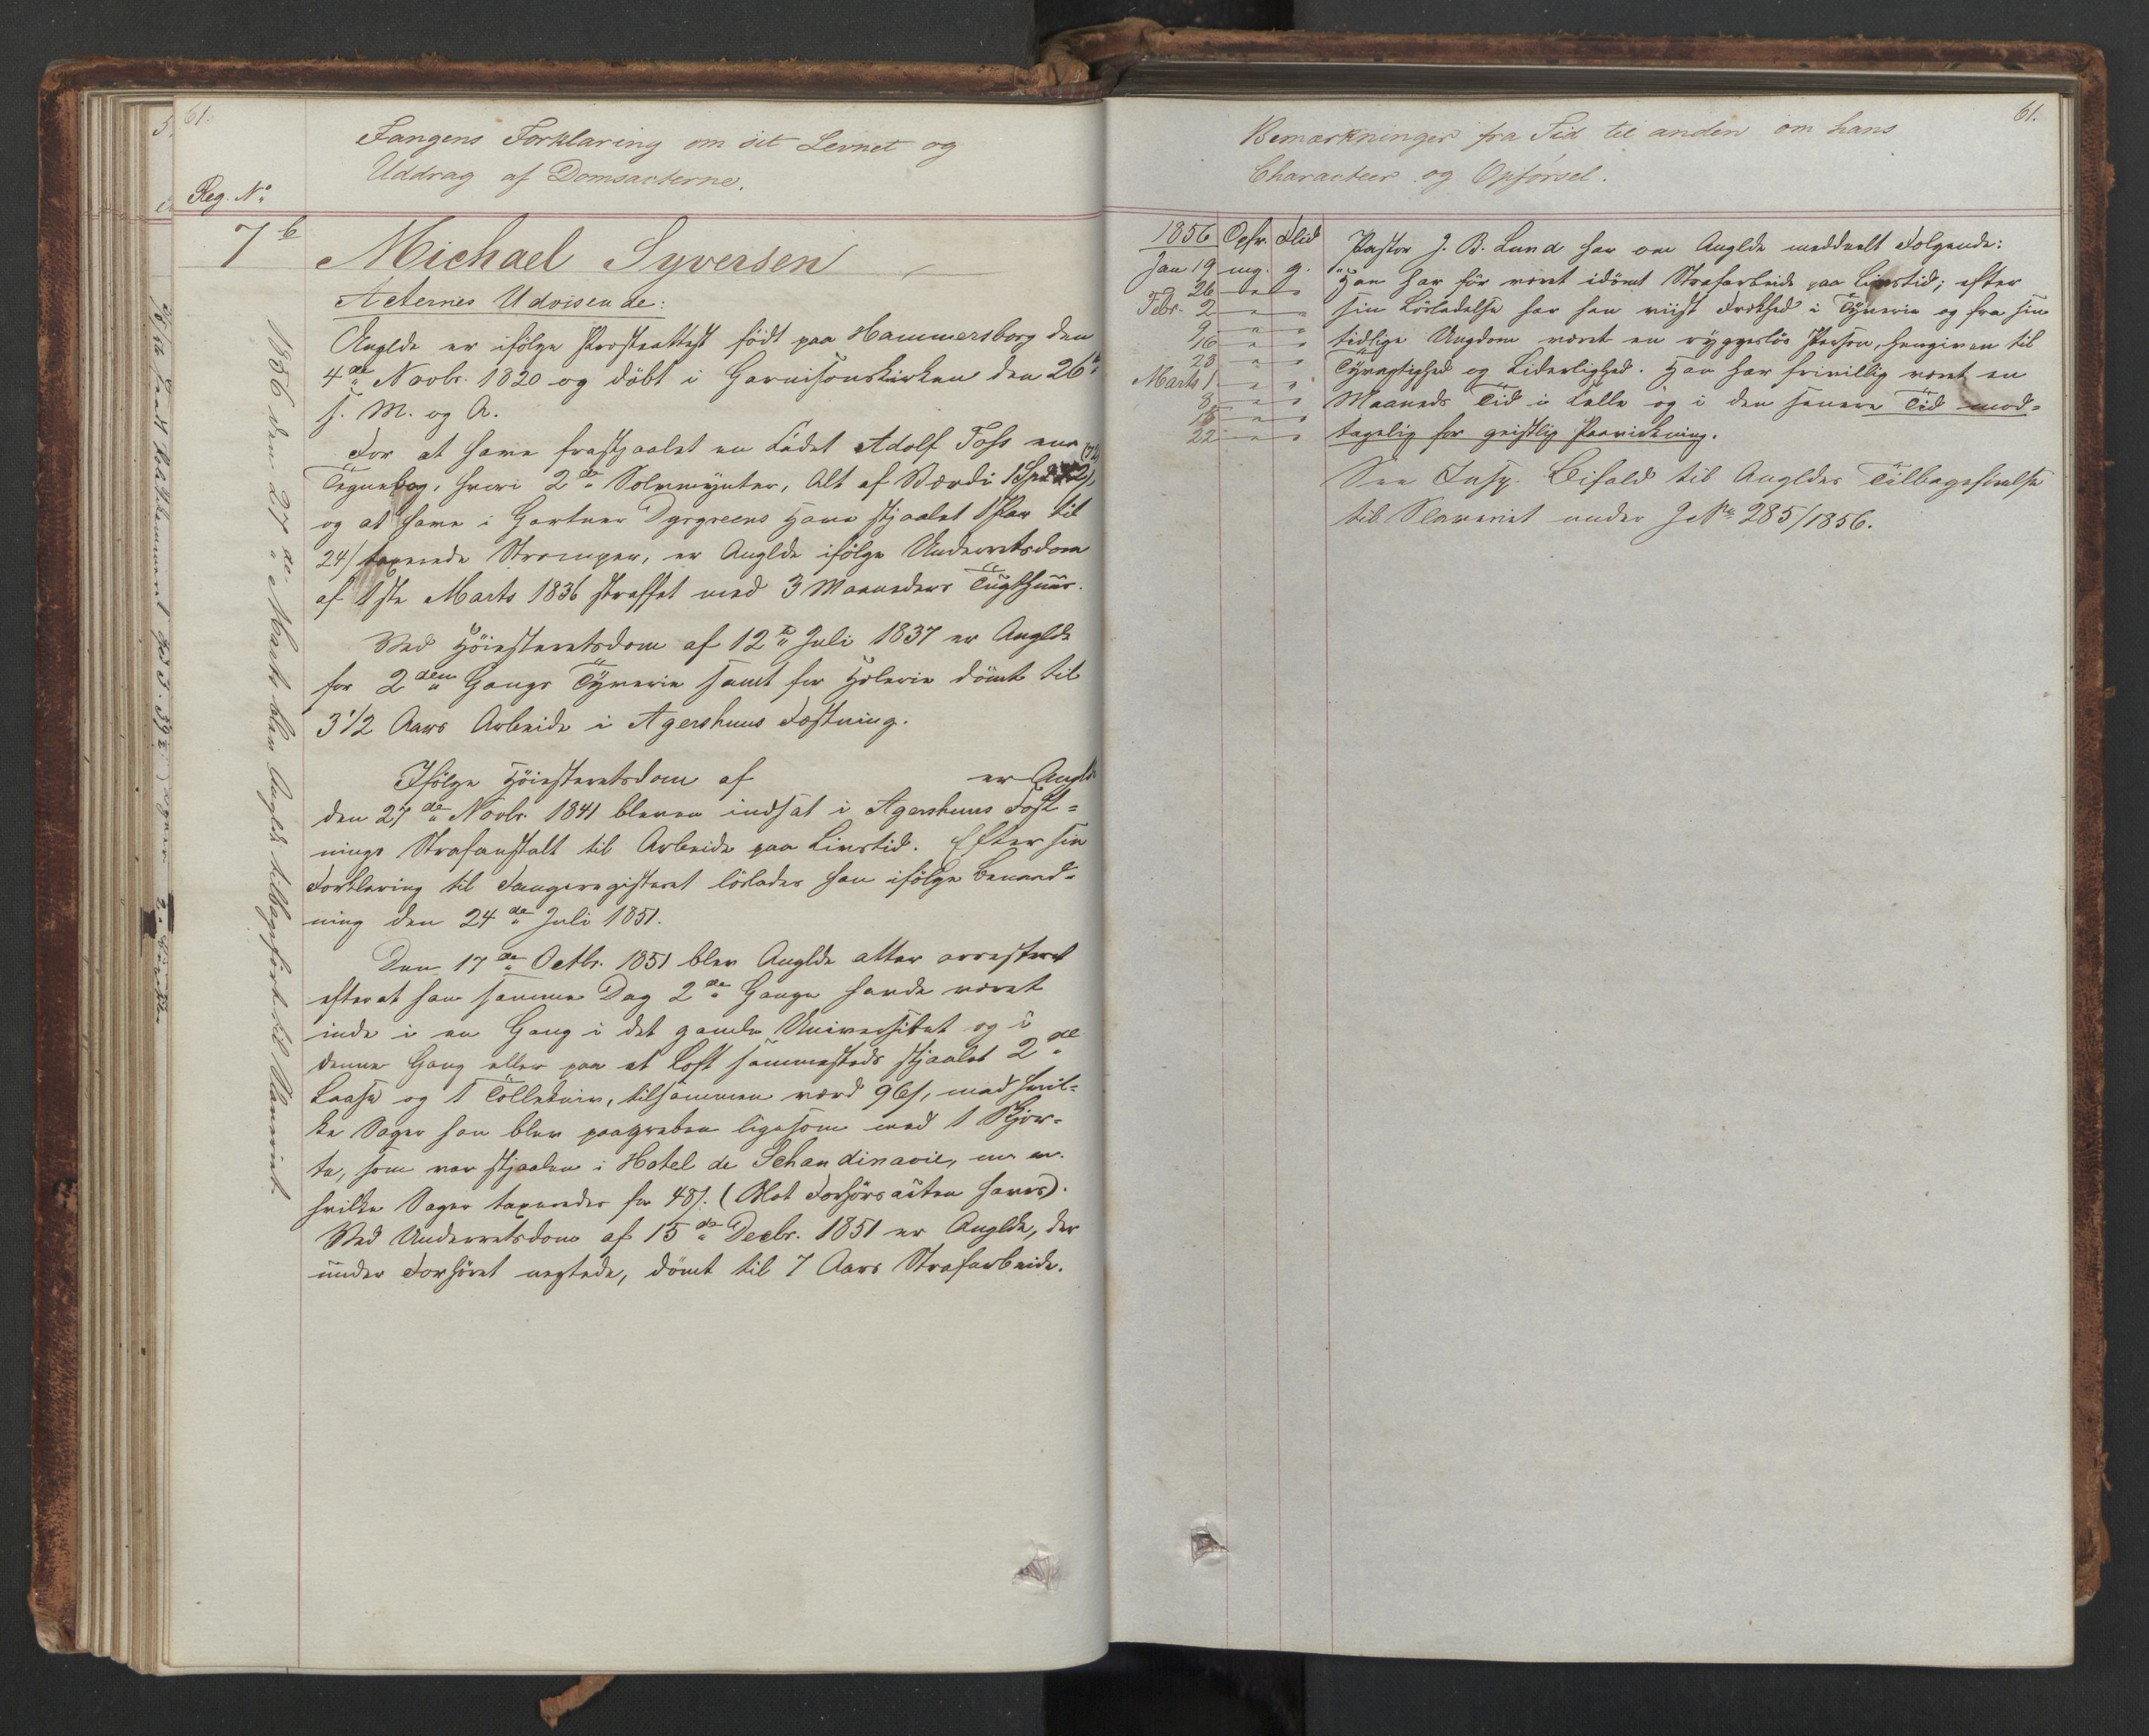 61.
Fangens Forklaring om sit Levnet og
Uddrag af Domsacterne.
Reg. No
7 b Michael Syversen
Acternes Udvisende:
Angldе er ifølge Præsteattest födt paa Hammersborg den
4de Novbr. 1820 og döbt i Garnisonskirken den 26de
s. M. og A.
For at have frastjaalet en Cadet Adolf Foss en
Tegnebog, hvori 2de Sölvmynter, Alt af Værdi 1 Spd
og at have i Gartner Dyrgreens Have stjaalet 1 Par til
24 s taxerede Strømper, er Anglde ifölge Underretsdom
af 1ste Marts 1836 straffet med 3 Maaneders Tugthuus.
Ved Höiesteretsdom af 12te Juli 1837 er Anglde
for 2den Gangs Tyverie samt for Hæleri dömt til
3 1/2 Aars Arbeide i Agershuus Fæstning.
Ifölge Höiesteretsdom af er Anglde
den 27de Novbr. 1841 bleven indsat i Agershuus Fæst=
nings Strafanstalt til Arbeide paa Livstid. Efter sin
Forklaring til Fangeregisteret löslades han ifölge Benaad=
ning den 24de Juli 1851.
Den 17de Octbr. 1851 blev Anglde atter arresteret
efterat han samme Dag 2de Gange havde været
inde i en Gang i det gamle Universitet og i
denne Gang eller paa et Loft sammesteds stjaalet 2de
Laase og 1 Tollekniv, tilsammen værd 96 s, med hvil=
ke Sager han blev paagreben ligesom med 1 Skjor=
te, som var stjaalen i Hotel de Schandinavie,
hvilke Sager taxeredes for 48 s. (Blot Forhörsacten haves).
Ved Underretsdom af 15de Decbr. 1851 er Anglde, der
under Forhöret negtede, dömt til 7 Aars Strafarbeide.
1856 den 27de Marts blev Anglde tilbageført til Slaveriet.
61.
Bemærkninger fra Tid til anden om hans
Characteer og Opførsel.
1856 Opfr. Flid
Jan 19 mg. g.
26 " "
Febr. 2 " "
9 " "
16 " "
23 " "
Marts 1 " "
8 " "
15 " "
22 " "
Pastor J. B. Lund har om Anglde meddeelt Følgende:
"Han har för været idömt Strafarbeide paa Livstid; efter
sin Lösladelse har han viist Frækhed i Tyverie og fra sin
tidlige Ungdom været en ryggeslös Person, hengiven til
Tyvagtighed og Liderlighed. Han har frivillig været en
Maaneds Tid i Celle og i den senere Tid mod=
tagelig for geistlig Paavirkning.
See Insp. Bifald til Angldes Tilbageførelse
til Slaveriet under J. No 285/1856.